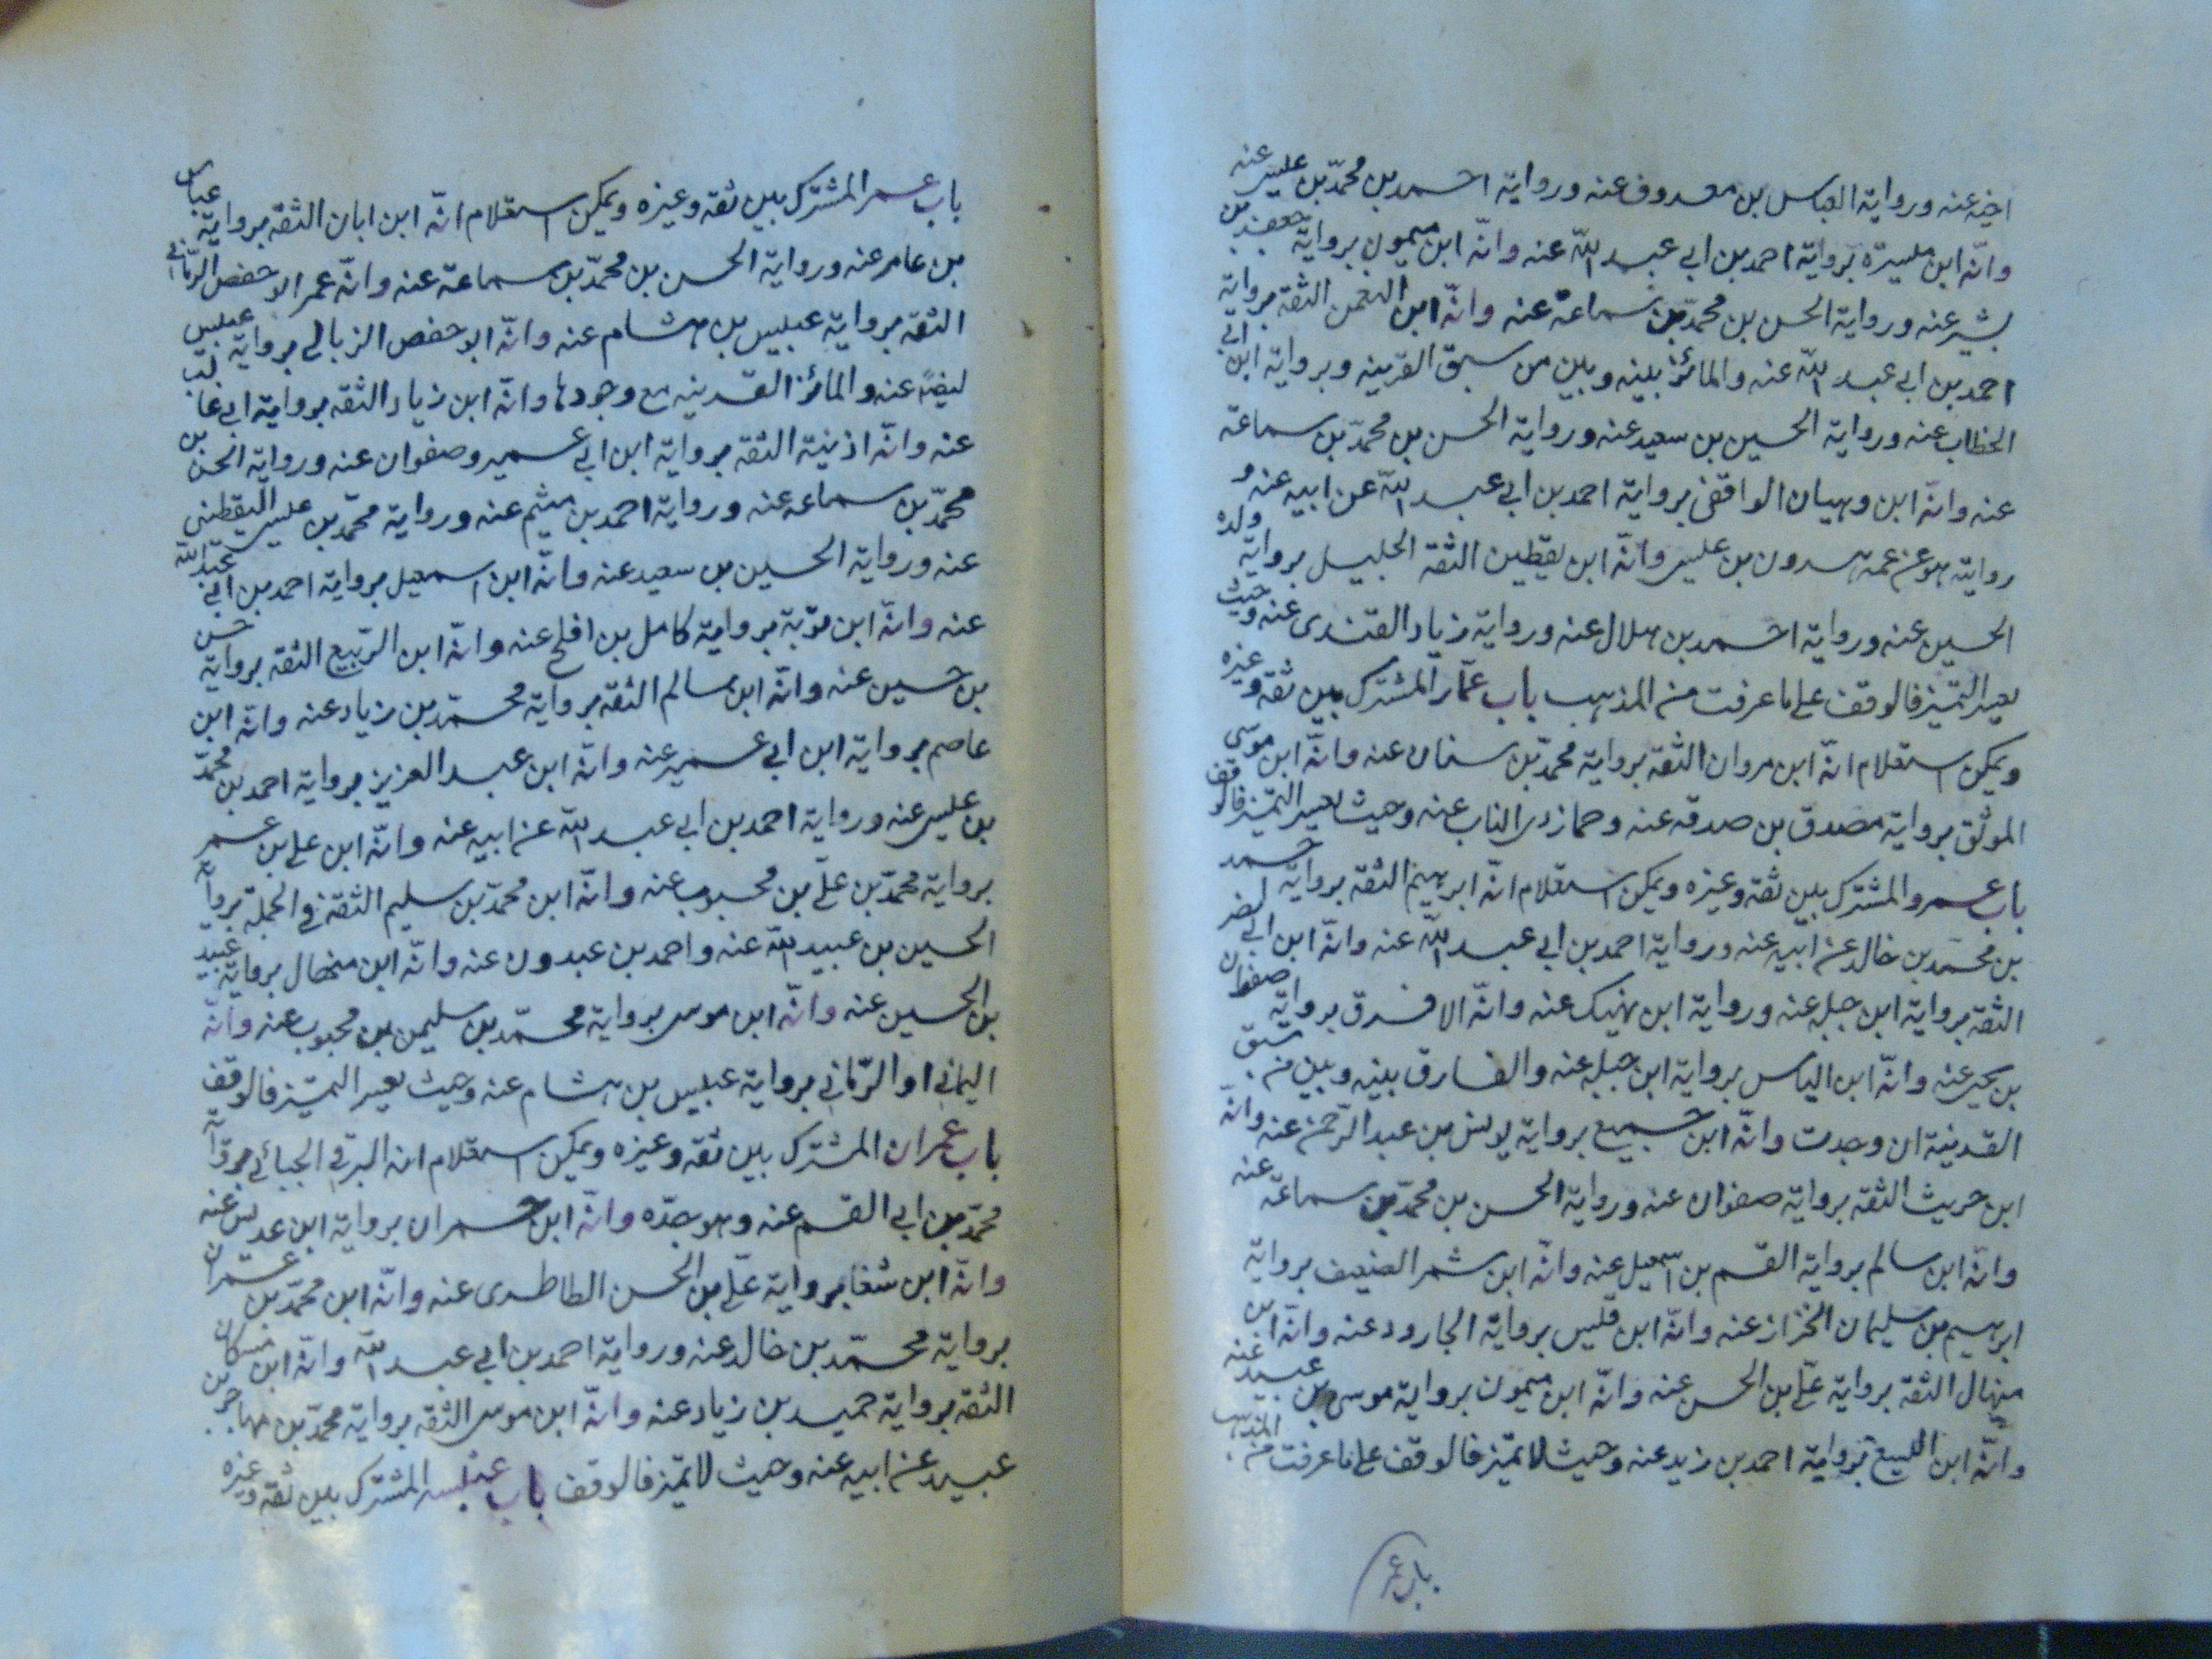 اخيه عنه ورواية العباس بن معروف عنه ورواية احمد بن محمّد بن عيسى عنه
وانّه ابن ميسرة برواية احمد بن ابي عبد اللّه عنه وانّه ابن ميمون برواية جعفر بن
بشير عنه ورواية الحسن بن محمّد بن سماعة عنه وانّه ابن النعمن الثقة برواية
احمد بن ابي عبد اللّه عنه والمائز بينه وبين من سبق القرينه وبرواية ابن ابي
الخطاب عنه ورواية الحسين بن سعيد عنه ورواية الحسن بن محمّد بن سماعة
عنه وانّه ابن وهبان الواقفى برواية احمد بن ابي عبد اللّه عن ابيه عنه و
رواية هو عن عمه هرون بن عيسى وانّه ابن يقطين الثقة الجليل برواية ولده
الحسين عنه ورواية احمد بن هلال عنه ورواية زياد القندى عنه وحيث
يعسر التميز فالوقف على ما عرفت من المذهب باب عمّار المشترك بين ثقة وغيره
ويمكن استعلام انّه ابن مروان الثقة برواية محمّد بن سنان عنه وانّه ابن موسى
الموثق برواية مصدق بن صدقه عنه وحماز دى الناب عنه وحيث يعسر التميز فالوقف
باب عمرو المشترك بين ثقة وغيره ويمكن استعلام انّه ابرهيم الثقة برواية احمد
بن محمّد بن خالد عن ابيه عنه ورواية احمد بن ابي عبد اللّه عنه وانّه ابن ابي نصر
الثقة برواية ابن جبله عنه ورواية ابن نهيك عنه وانّه الافرق برواية صفوان
بن يحيى عنه وانّه ابن الياس برواية ابن جبله عنه والفارق بينه وبين من سبق
القرينة ان وجدت وانّه ابن جميع برواية يونس بن عبد الرّحمن عنه وانّه
ابن حريث الثقة برواية صفوان عنه ورواية الحسن بن محمّد بن سماعة عنه
وانّه ابن سالم برواية القسم بن اسمعيل عنه وانّه ابن شمر الضعيف برواية
ابرهيم بن سليمان الخزاز عنه وانّه ابن قيس برواية الجارود عنه وانّه ابن
منهال الثقة برواية علّى بن الحسن عنه وانّه ابن ميمون برواية موسى بن عبيد عنه
وانّه ابن اليسع برواية احمد بن زيد عنه وحيث لا تميّز فالوقف على ما عرفت من المذهب
باب عمر
باب عمر المشترك بين ثقه وغيره ويمكن استعلام انّه ابن ابان الثقة برواية عباس
بن عامر عنه ورواية الحسن بن محمّد بن سماعة عنه وانّه عمر ابو حفص الرمّانى
الثقه برواية عبيس بن هشام عنه وانّه ابو حفص الزبالى برواية عبيس
ايضًا عنه والمائز القرينه مع وجودها وانّه ابن زياد الثقه برواية ابى غالب
عنه وانّه اذينة الثقه برواية ابن ابي عمير وصفوان عنه ورواية الحسن بن
محمّد بن سماعه عنه ورواية احمد بن ميثم عنه ورواية محمّد بن عيسى اليقطينى
عنه ورواية الحسين بن سعيد عنه وانّه ابن اسمعيل برواية احمد بن ابي عبد اللّه
عنه وانّه ابن توبة برواية كامل بن افلح عنه وانّه ابن الرّبيع الثقه برواية حسن
بن حسين عنه وانّه ابن سالم الثقه برواية محمّد بن زياد عنه وانّه ابن
عاصم برواية ابن ابي عمير عنه وانّه ابن عبد العزيز برواية احمد بن محمّد
بن عيسى عنه ورواية احمد بن ابي عبد اللّه عن ابيه عنه وانّه ابن على بن عمر
برواية محمّد بن علّى بن محبوب عنه وانّه ابن محمّد بن سليم الثقة في الجملة برواية
الحسين بن عبيد اللّه عنه واحمد بن عبدون عنه وانّه ابن منخال برواية عبيد
بن الحسين عنه وانّه ابن موسى برواية محمّد بن سليمن بن محبوب عنه وانّه
اليمانى او الرّمانى برواية عبيس بن هشام عنه وحيث يعسر التميّز فالوقف
باب عمران المشترك بين ثقه وغيره ويمكن استعلام انه البرقى الجبائى برواية
محمّد بن ابي القسم عنه وهو جدّه وانّه ابن حمران برواية ابن عديس عنه
وانّه ابن شفا برواية علّى بن الحسن الطاطرى عنه وانّه ابن محمّد بن عمران
برواية محمّد بن خالد عنه ورواية احمد بن ابي عبد اللّه وانّه ابن مسكان
الثقه برواية حميد بن زياد عنه وانّه ابن موسى الثقه برواية محمّد بن مهاجر بن
عبيد عن ابيه عنه وحيث لا تميّز فالوقف باب عنبسه المشترك بين ثقة وغيره